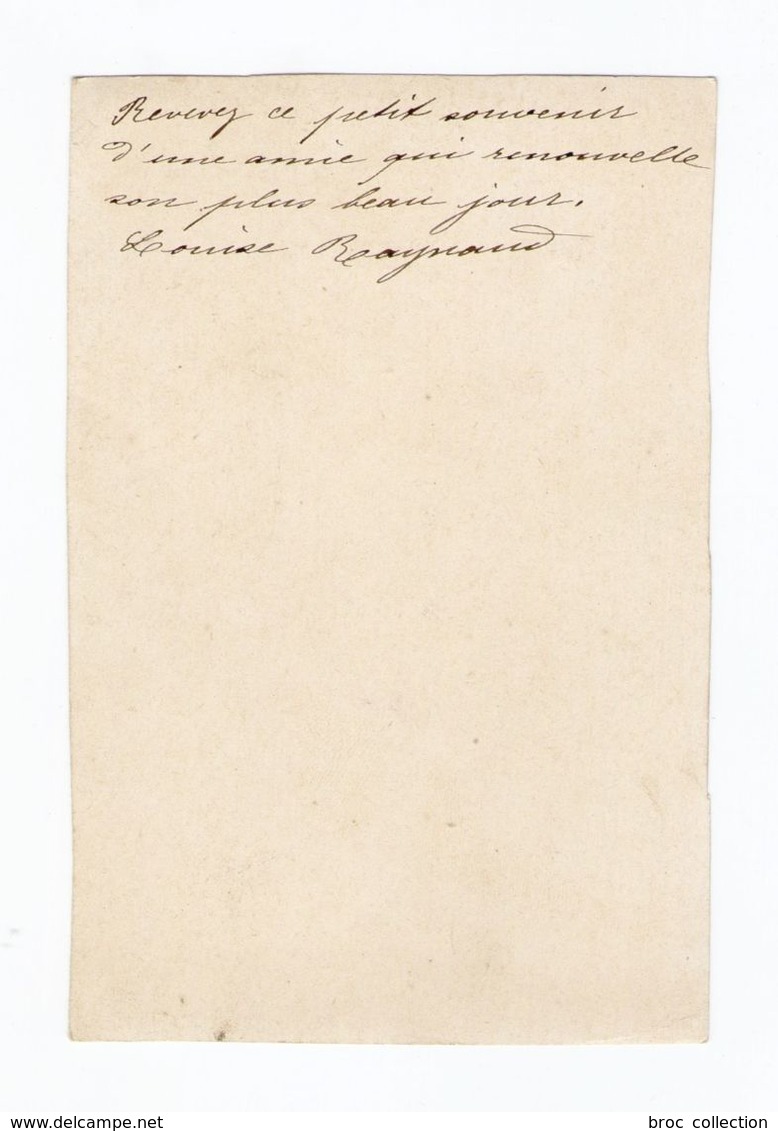 Revevez ce petit souvenir
d'une amie qui renouvelle
son plus beau jour.
Louise Raynaud
delcampe.net
broc collection